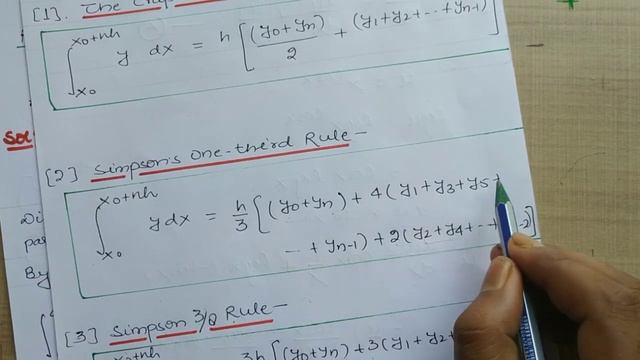 [1]. The
∫ x₀+nh x₀ y dx = h [ (y₀+yₙ)/2 + (y₁+y₂+...+yₙ₋₁) ]
Sol
[2] Simpson's One-third Rule-
∫ x₀+nh x₀ y dx = h/3 [ (y₀+yₙ) + 4(y₁+y₃+y₅+
... + yₙ₋₁) + 2(y₂+y₄+...+ -2) ]
By
[3] Simpson 3/8 Rule-
3h [ (y₀+yₙ) + 3(y₁+y₂+